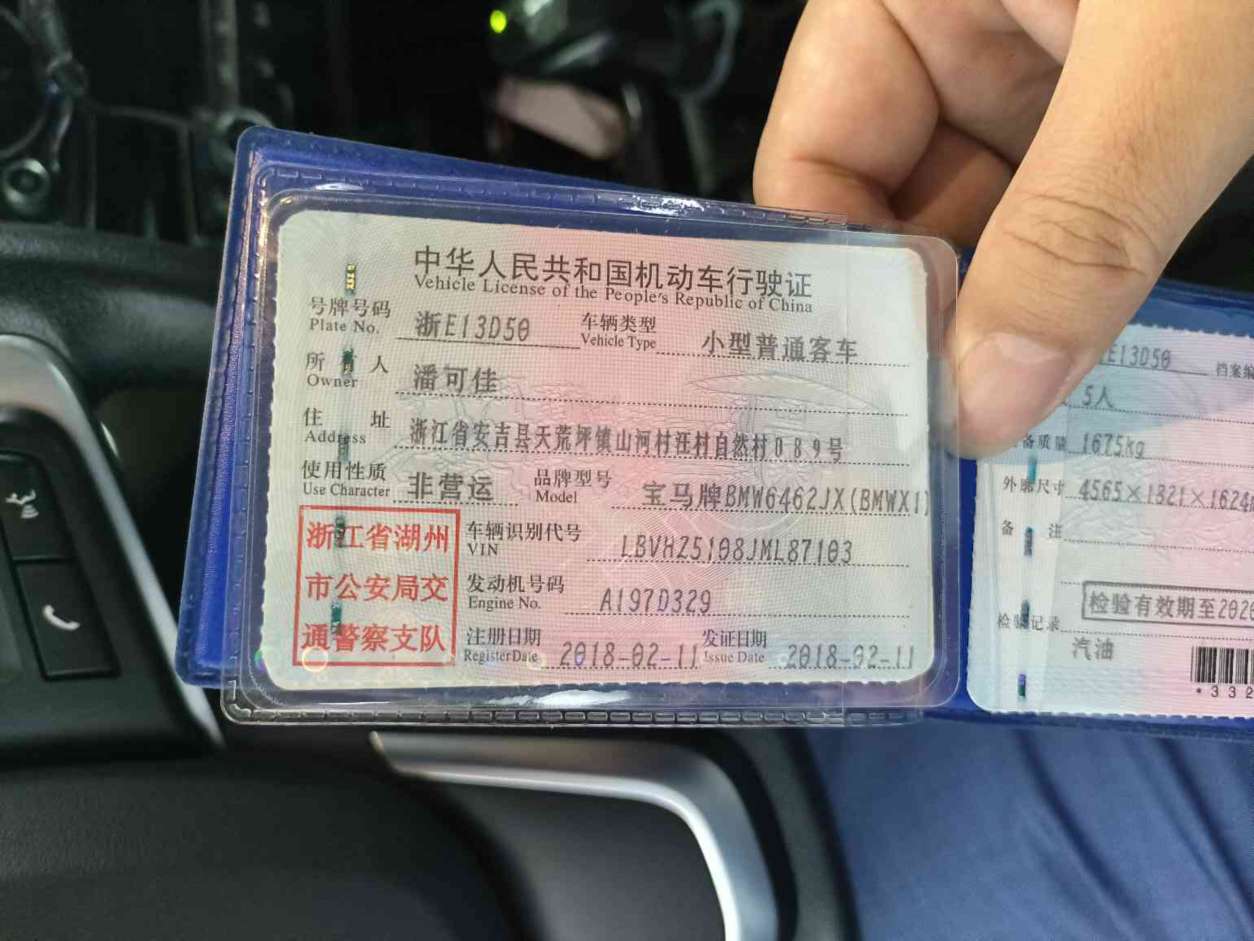 中华人民共和国机动车行驶证
Vehicle License of the People's Republic of China
号牌号码 浙E13D50 车辆类型 小型普通客车
Plate No. Vehicle Type
所有人 潘可佳
Owner
住址 浙江省安吉县天荒坪镇山河村汪村自然村089号
Address
使用性质 非营运 品牌型号 宝马牌BMW6462JX(BMWX1)
Use Character Model
浙江省湖州
市公安局交
通警察支队
车辆识别代号 LBVHZ5108JML87103
VIN
发动机号码 A197D329
Engine No.
注册日期 2018-02-11 发证日期 2018-02-11
Register Date Issue Date
E13D50 档案编
5人
备质量 1675kg
外廓尺寸 4565×1821×1624
备注
检验有效期至2020
检验记录
汽油
*332